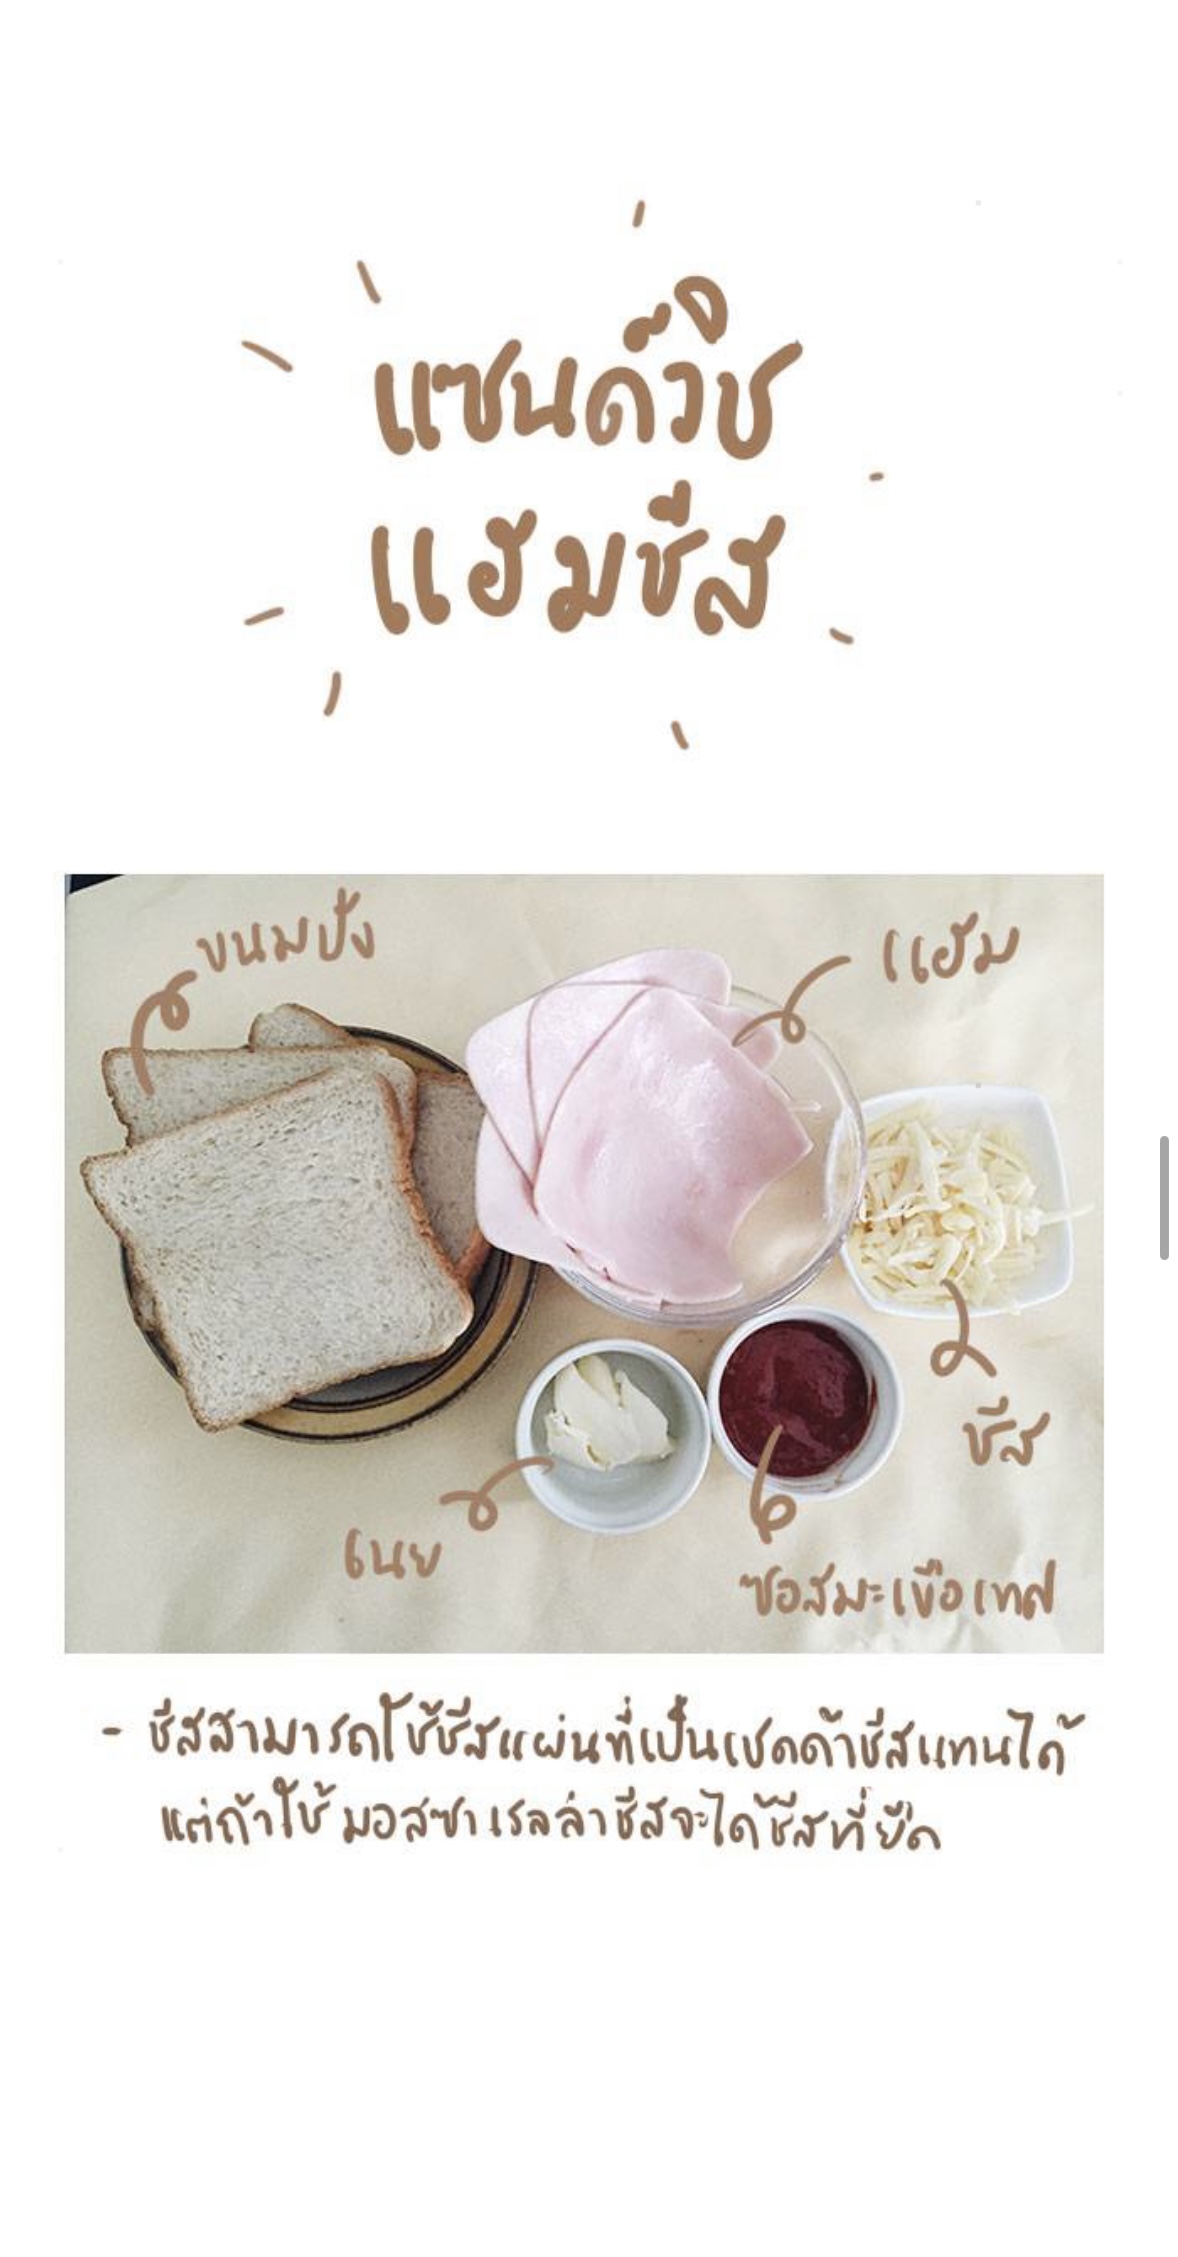 แซนด์วิช
แฮมชีส
ขนมปัง
แฮม
ชีส
เนย
ซอสมะเขือเทศ
- ชีสสามารถใช้ชีสแผ่นที่เป็นเชดด้าชีสแทนได้
แต่ถ้าใช้มอสซาเรลล่าชีสจะได้ชีสที่ยืด